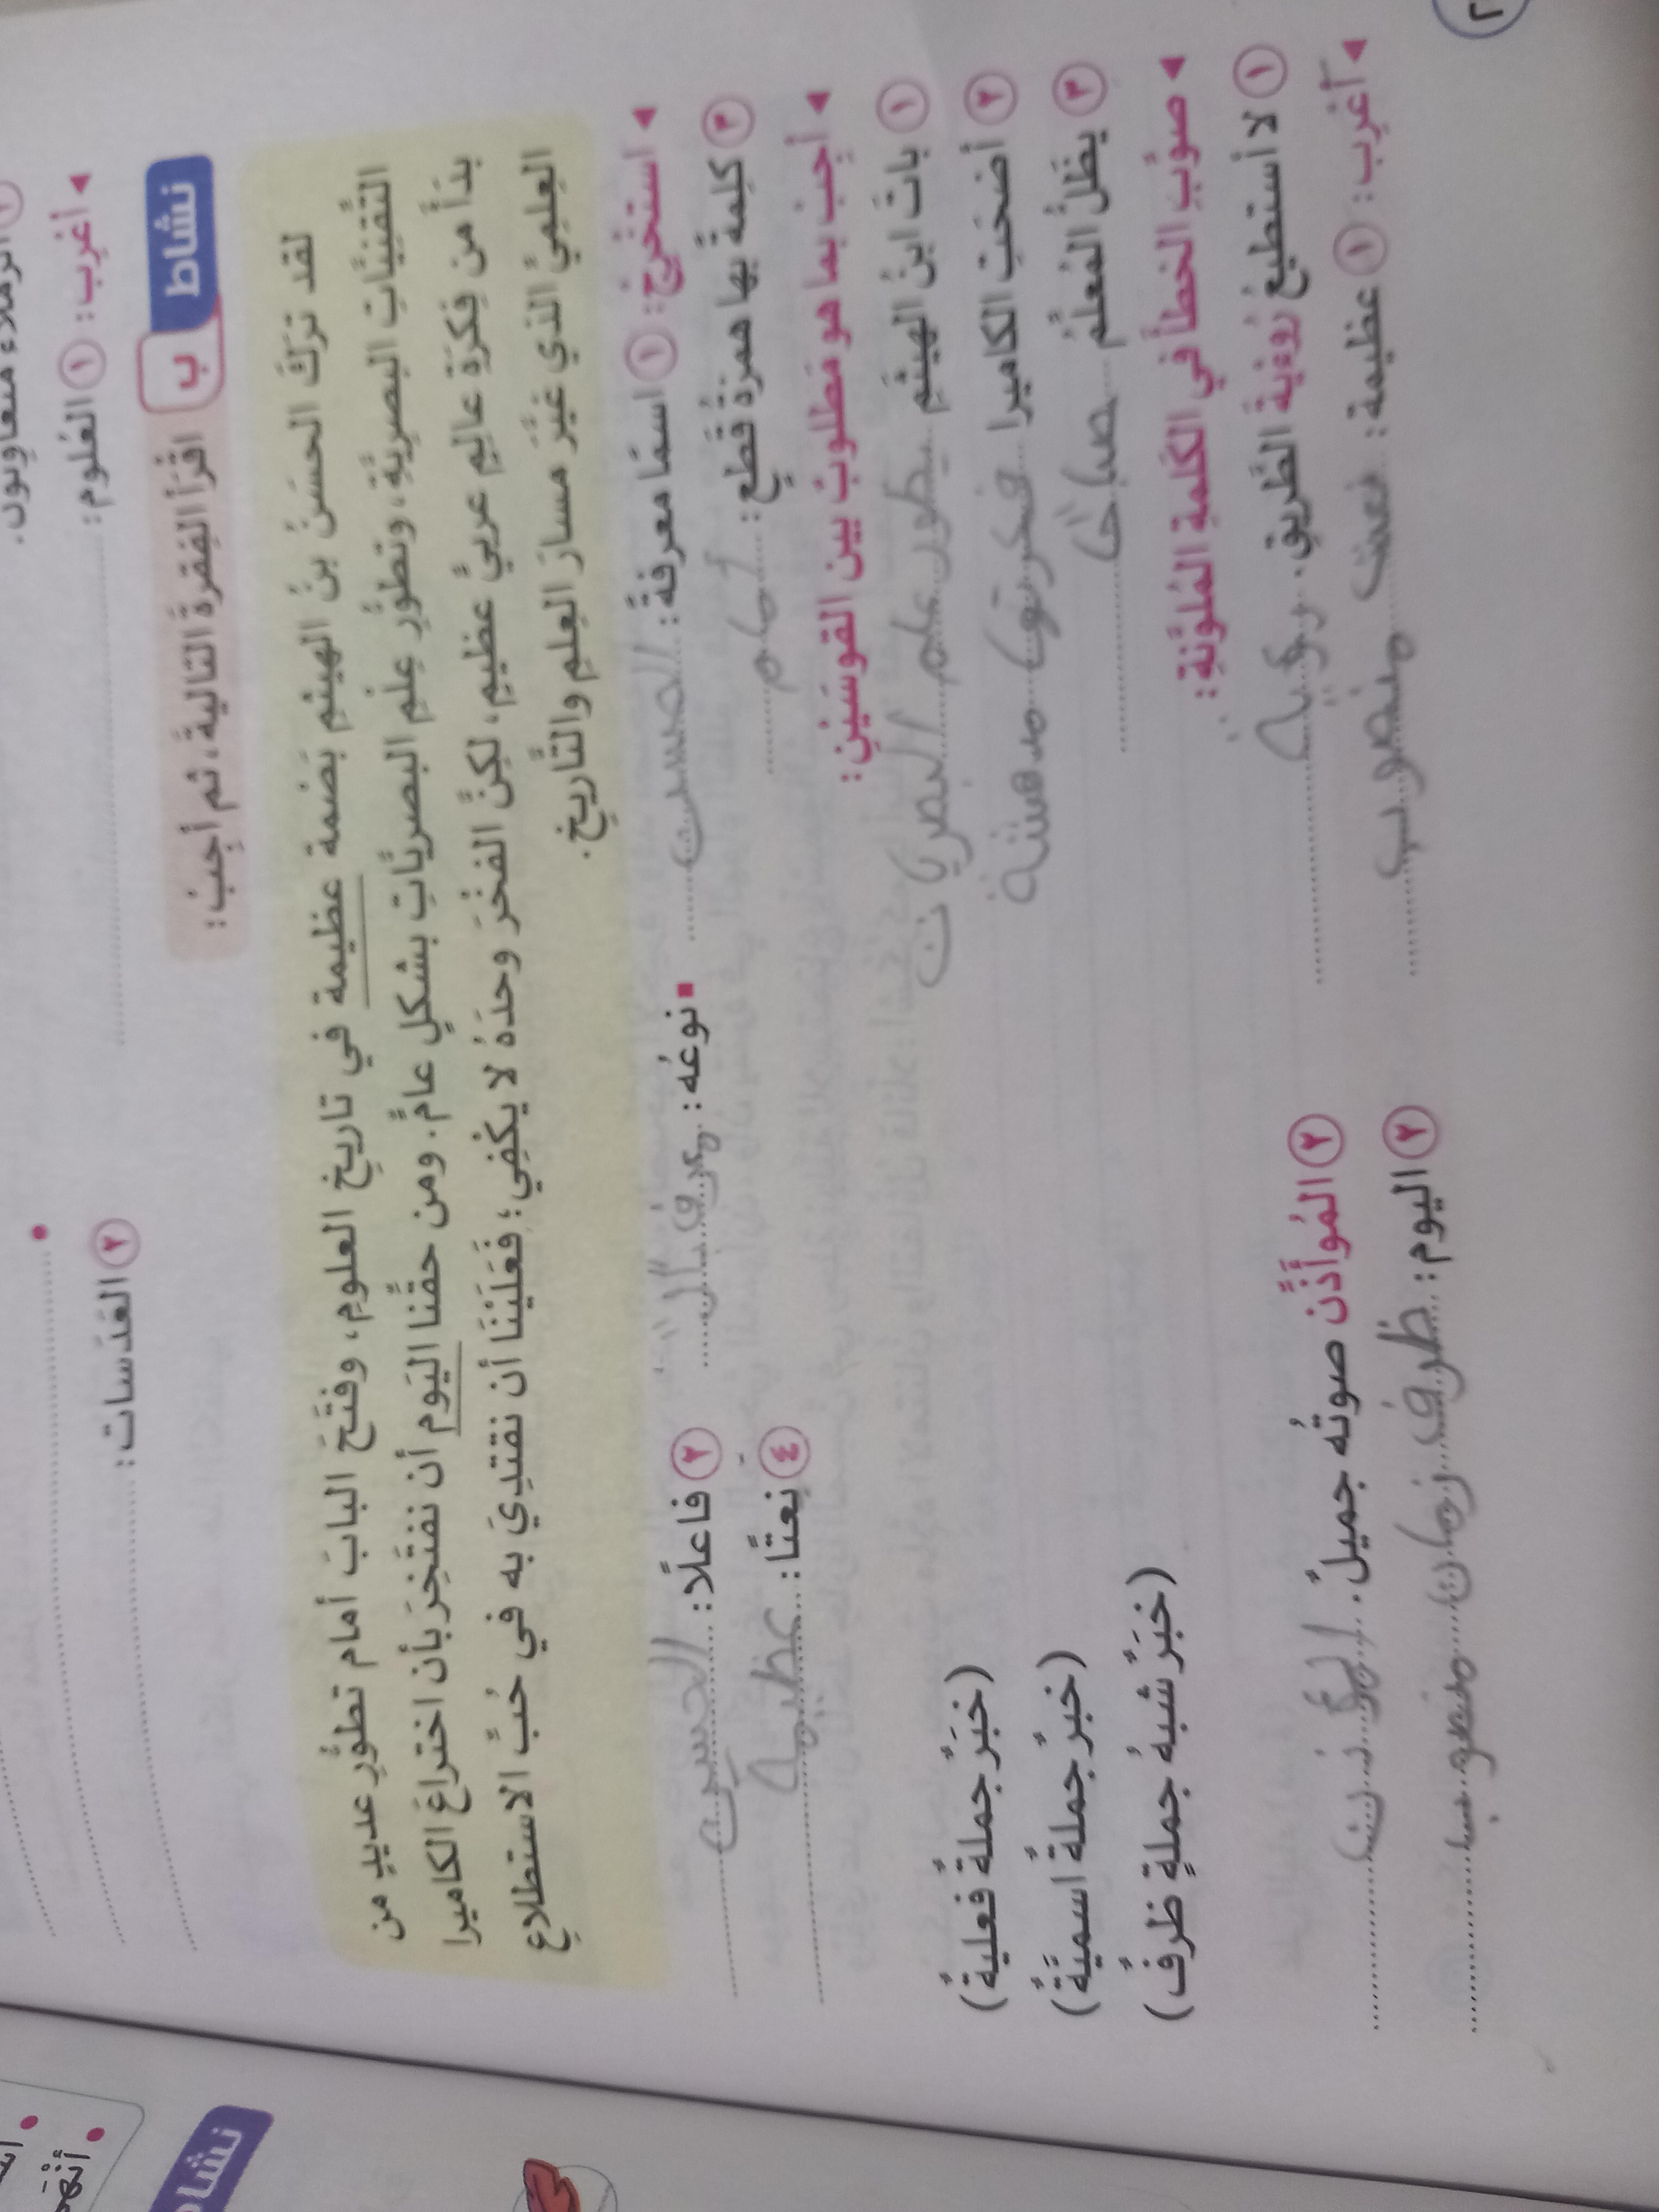 الزملاء متعاونون.
◄ أعْرِب: ١ العُلوم: ٢ العَدَسات:
نشاط ب اقْرَأ الفِقرةَ التاليةَ، ثم أجِبْ:
لقد تركَ الحسَنُ بنُ الهيثمِ بَصْمة عظيمة في تاريخِ العلومِ، وفتَحَ البابَ أمام تطوُّرِ عديدٍ من
التِّقنيَّاتِ البصريَّةِ، وتطوُّرِ عِلْمِ البصريَّاتِ بشكلٍ عامٍّ. ومن حقِّنا اليَوم أن نفتَخِرَ بأن اختراعَ الكاميرا
بدَأَ من فِكرَةِ عالِمٍ عربيٍّ عظيمٍ، لكِنَّ الفخْرَ وحدَهُ لا يكْفِي؛ فَعَلَيْنَا أن نقتدِيَ به في حُبِّ الاستطلاعِ
العِلميِّ الذي غيَّرَ مسارَ العِلمِ والتَّاريخِ.
◄ استخْرِجْ: ١ اسمًا معرفةً: الحسن ■ نوعُه: معرف بال ٢ فاعلًا: الحسن
٣ كلِمةً بها همزةُ قَطعٍ: أمام ٤ نعتًا: عظيمة
◄ أجِبْ بما هو مَطلوبٌ بين القوسَينِ:
١ باتَ ابنُ الهيثَمِ يطور علم البصريات (خبَرٌ جملةٌ فعليةٌ)
٢ أضحَت الكاميرا فكرتها مدهشة (خبرٌ جملةٌ اسميَّةٌ)
٣ يظَلُّ المُعلِّمُ صباحًا (خبَرٌ شبهُ جملةٍ ظرفٌ)
◄ صوِّبِ الخطأَ في الكَلمةِ المُلوَّنةِ:
١ لا أستطيعُ رُوءيةَ الطَّريقِ. رؤية ٢ المُوأَذِّن صوتُه جميلٌ. المؤذن
◄ أعْرِب: ١ عظيمة: نعت منصوب ٢ اليوم: ظرف زمان منصوب